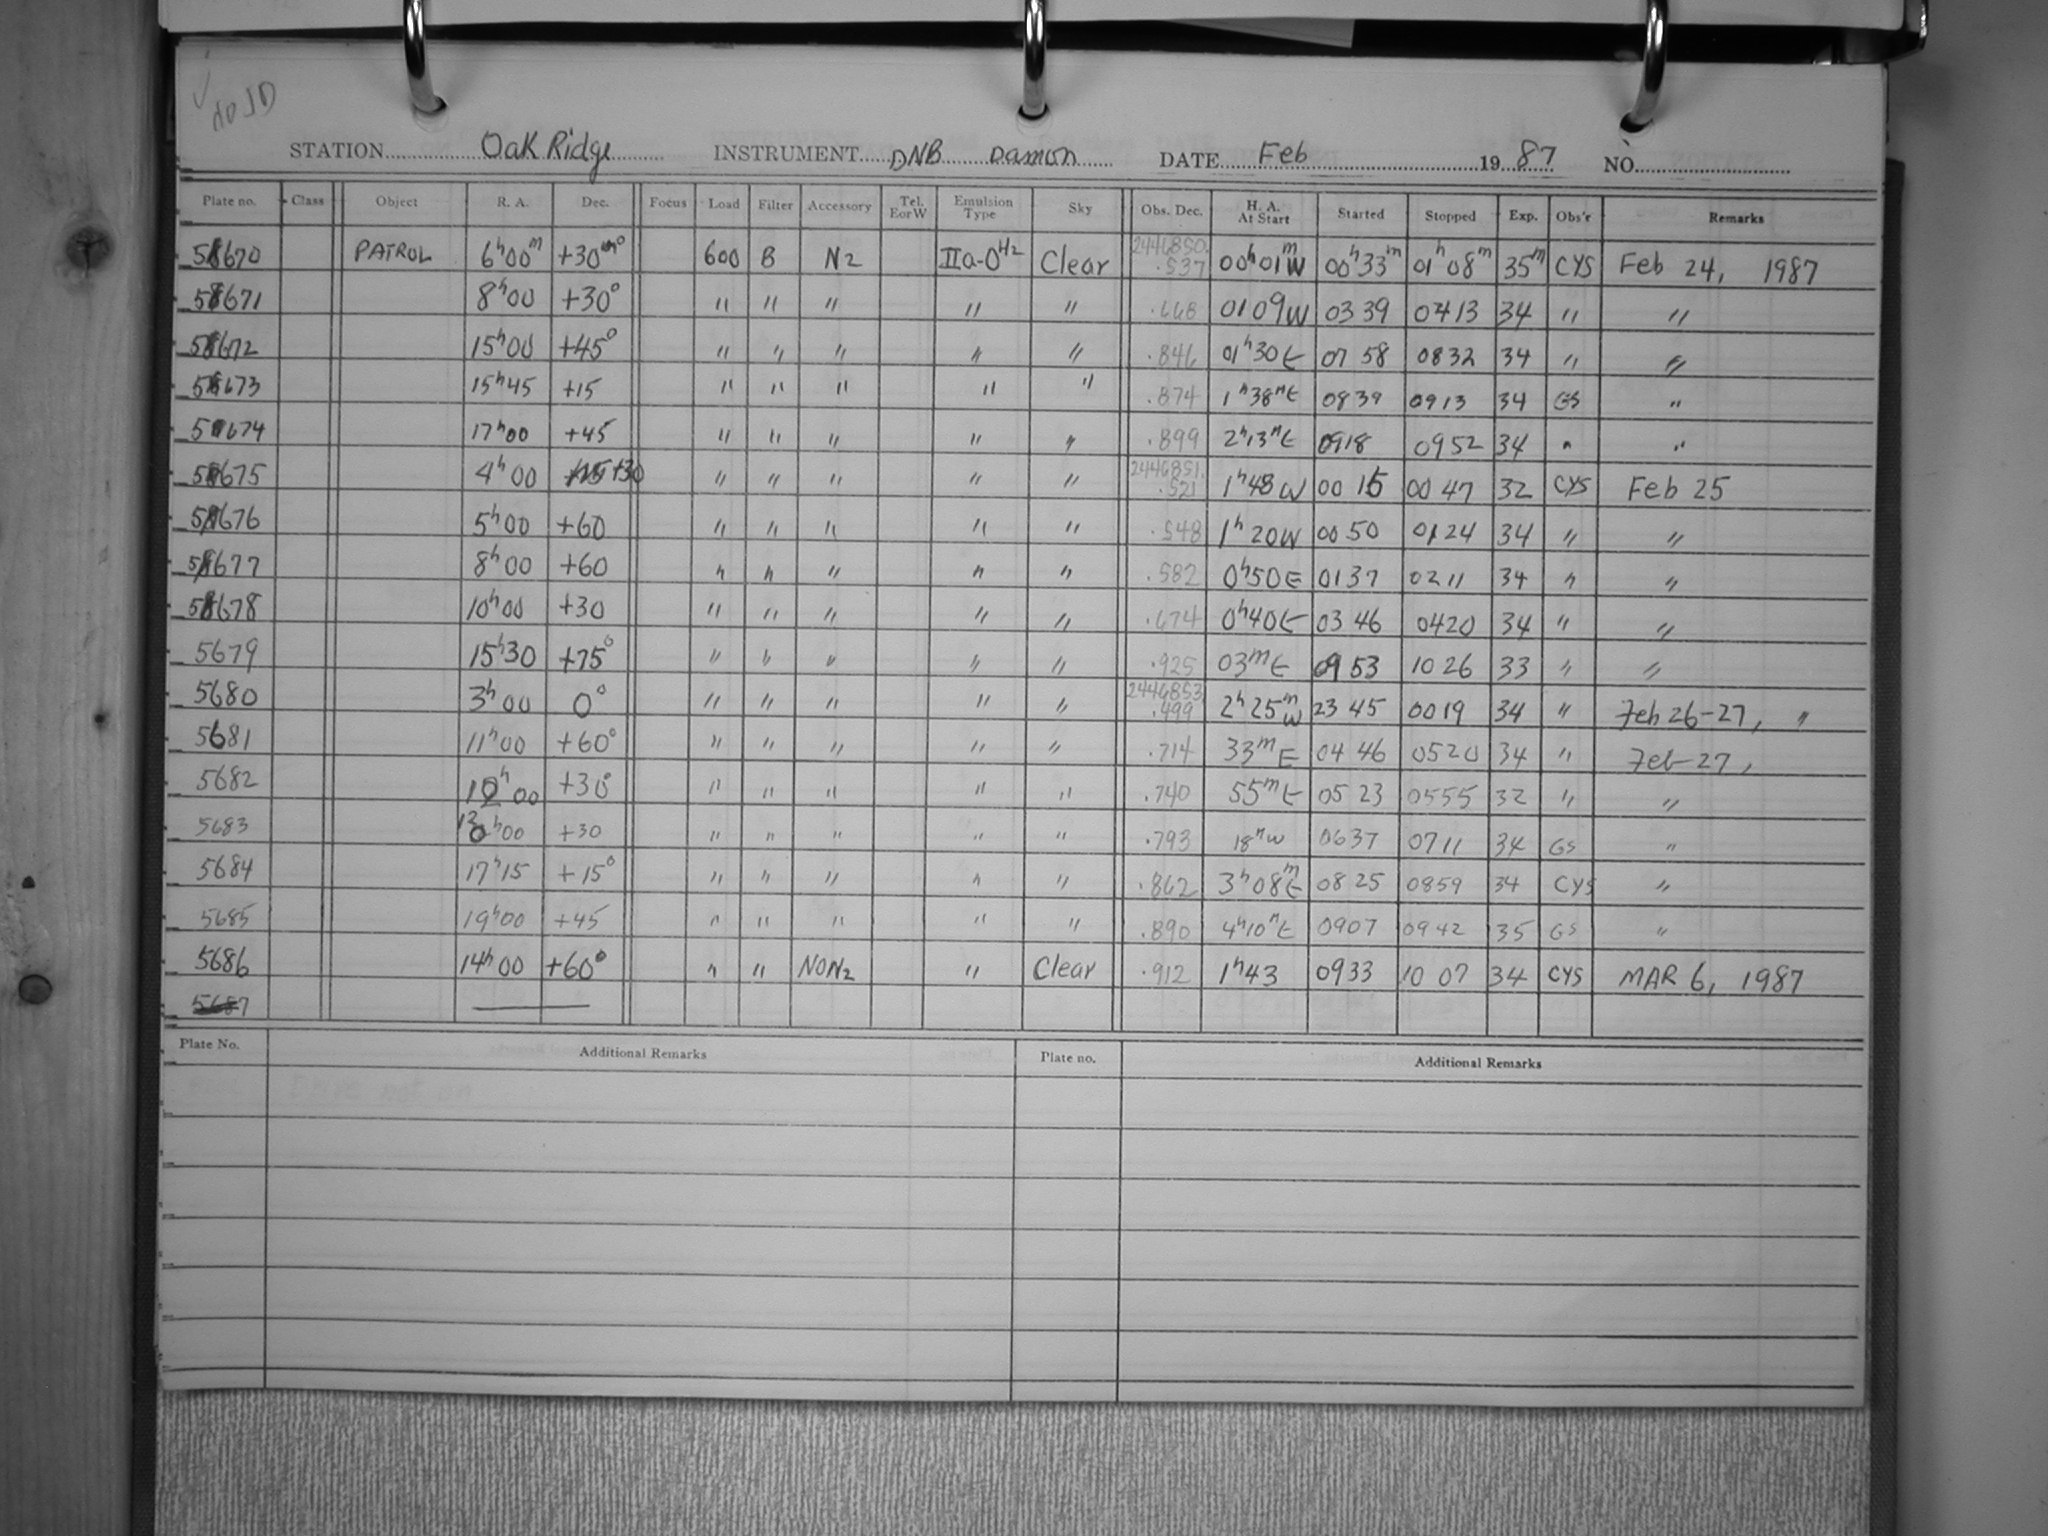 do JD
STATION Oak Ridge INSTRUMENT DNB Damon DATE Feb 1987 NO.
Plate no. Class Object R. A. Dec. Focus Load Filter Accessory Tel. E or W Emulsion Type Sky Obs. Dec. H. A. At Start Started Stopped Exp. Obs'r Remarks
5670 PATROL 6h00m +30° 600 B N2 IIa-O H2 Clear 2446850. .537 00h01mW 00h33m 01h08m 35m CYS Feb 24, 1987
5671 8h00 +30° " " " " " .668 0109W 0339 0413 34 " "
5672 15h00 +45° " " " " " .846 01h30E 0758 0832 34 " "
5673 15h45 +15 " " " " " .874 1h38mE 0839 0913 34 GS "
5674 17h00 +45 " " " " " .899 2h13mE 0918 0952 34 " "
5675 4h00 +30 " " " " " 2446851. .521 1h48W 0015 0047 32 CYS Feb 25
5676 5h00 +60 " " " " " .548 1h20W 0050 0124 34 " "
5677 8h00 +60 " " " " " .582 0h50E 0137 0211 34 " "
5678 10h00 +30 " " " " " .674 0h40E 0346 0420 34 " "
5679 15h30 +75° " " " " " .925 03mE 0953 1026 33 " "
5680 3h00 0° " " " " " 2446853 .499 2h25mW 2345 0019 34 " Feb 26-27, "
5681 11h00 +60° " " " " " .714 33mE 0446 0520 34 " Feb 27,
5682 12h00 +30° " " " " " .740 55mE 0523 0555 32 " "
5683 13h00 +30 " " " " " .793 18mW 0637 0711 34 GS "
5684 17h15 +15° " " " " " .862 3h08mE 0825 0859 34 CYS "
5685 19h00 +45 " " " " " .890 4h10mE 0907 0942 35 GS "
5686 14h00 +60° " " NON2 " Clear .912 1h43 0933 1007 34 CYS MAR 6, 1987
5687
Plate No. Additional Remarks Plate no. Additional Remarks